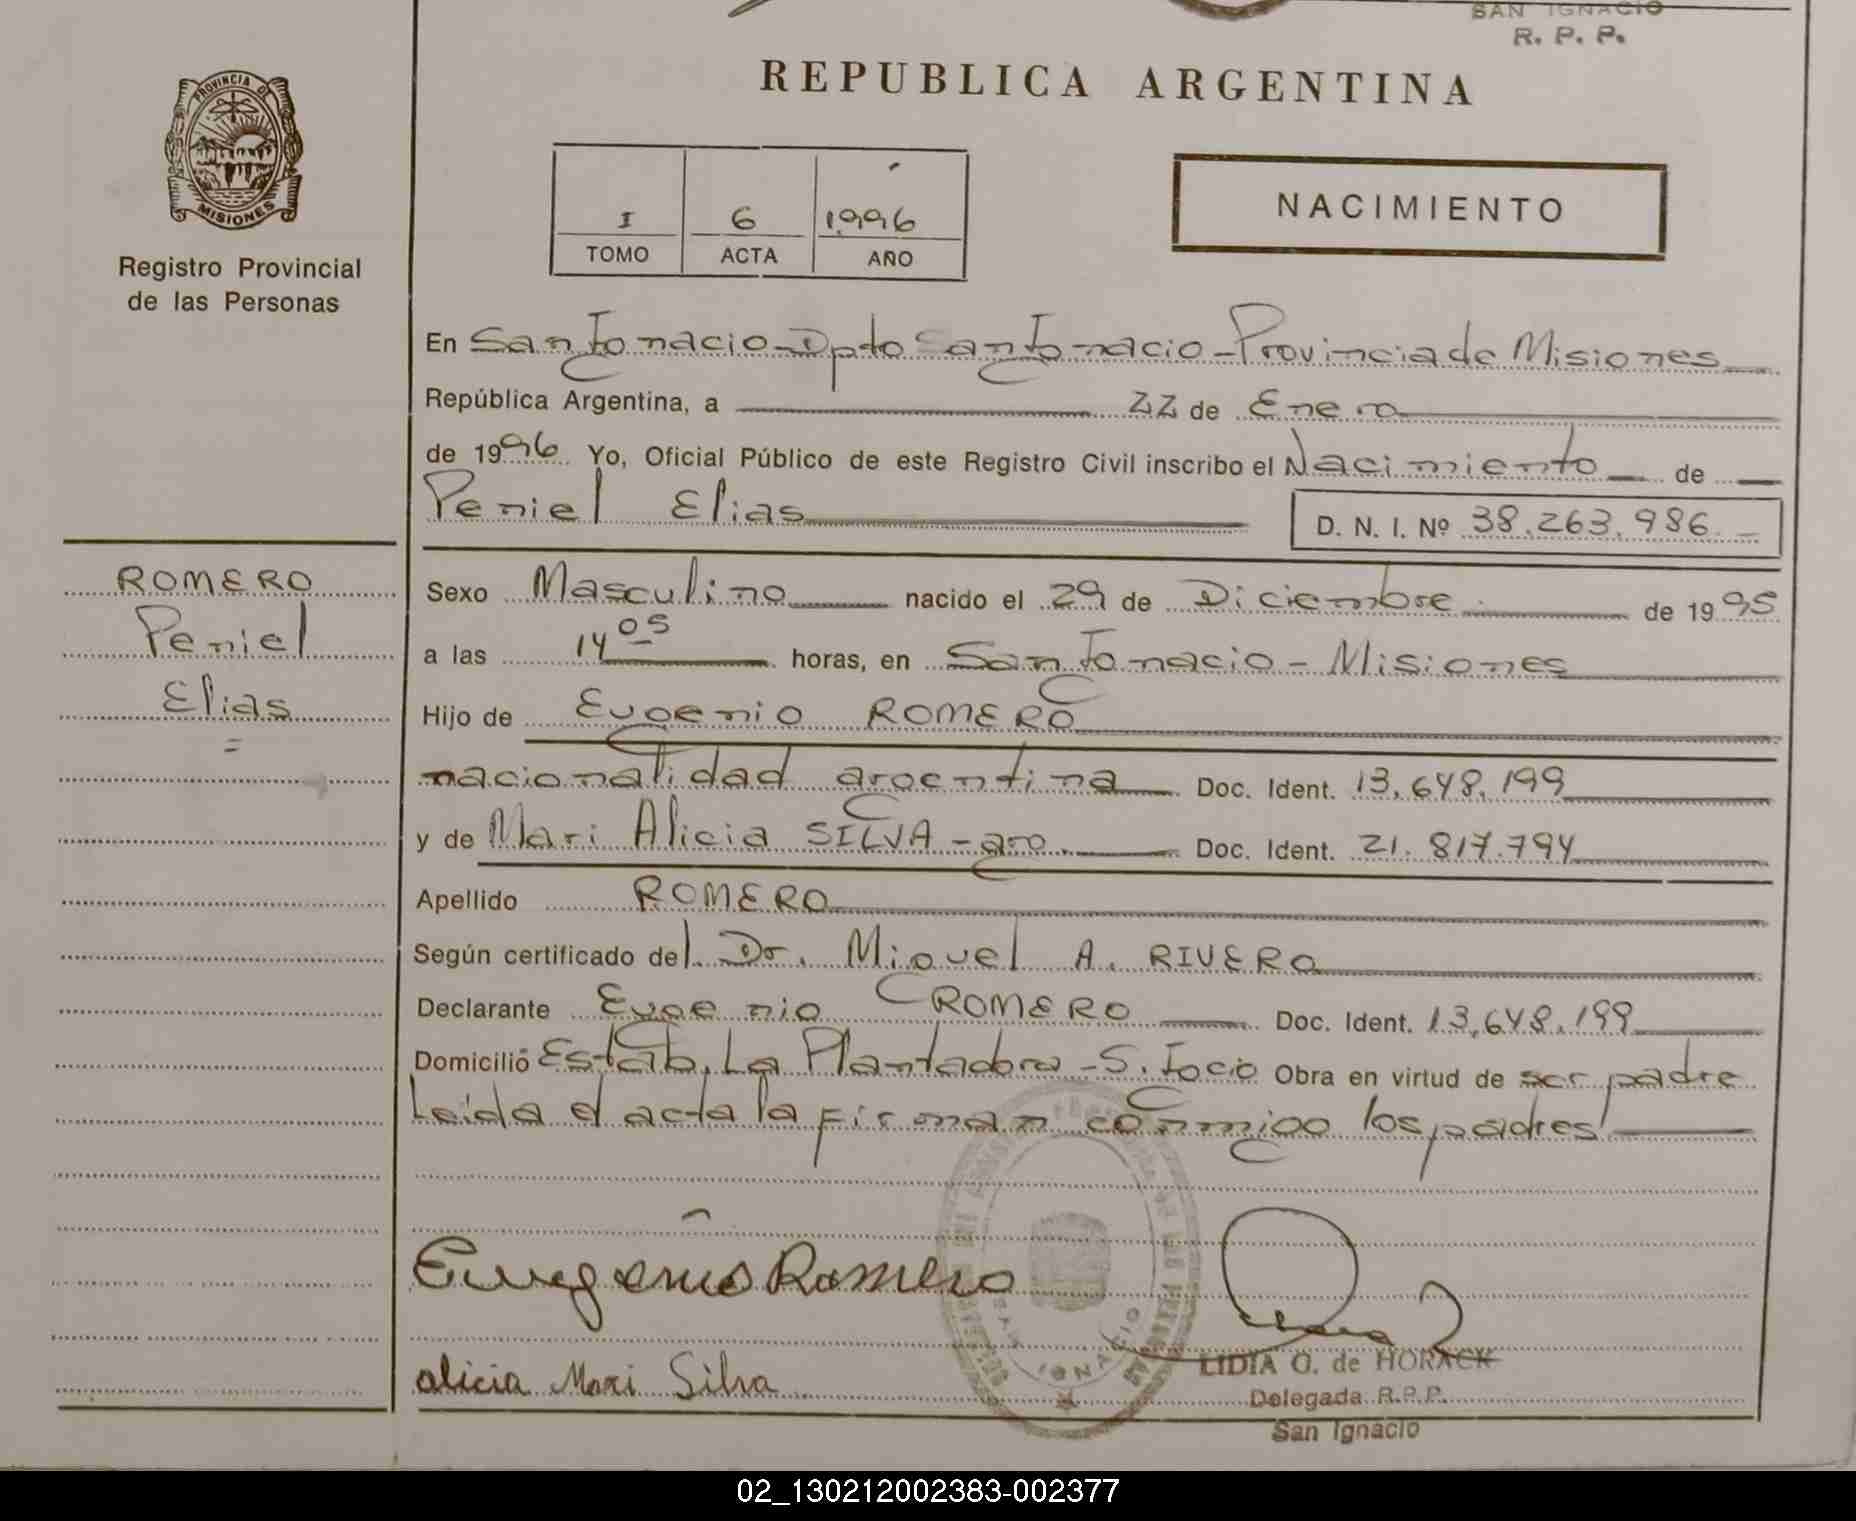 SAN IGNACIO
R. P. P.
REPUBLICA ARGENTINA
PROVINCIA DE
MISIONES
Registro Provincial
de las Personas
I 6 1996
TOMO ACTA AÑO
NACIMIENTO
En San Ignacio - Dpto San Ignacio - Provincia de Misiones
República Argentina, a 22 de Enero
de 1996 Yo, Oficial Público de este Registro Civil inscribo el Nacimiento de
Peniel Elias D. N. I. Nº 38.263.986.
ROMERO
Peniel
Elias
Sexo Masculino nacido el 29 de Diciembre de 1995
a las 14 05 horas, en San Ignacio - Misiones
Hijo de Eugenio ROMERO
nacionalidad argentina Doc. Ident. 13.648.199
y de Mari Alicia SILVA - arg. Doc. Ident. 21.817.794
Apellido ROMERO
Según certificado del Dr. Miguel A. RIVERO
Declarante Eugenio ROMERO Doc. Ident. 13.648.199
Domicilió Estab. La Plantadora - S. Igcio Obra en virtud de ser padre
Leida el acta la firman conmigo los padres
Eugenio Romero
alicia Mari Silva
SAN IGNACIO
LIDIA O. de HORACK
Delegada R.P.P.
San Ignacio
02_130212002383-002377